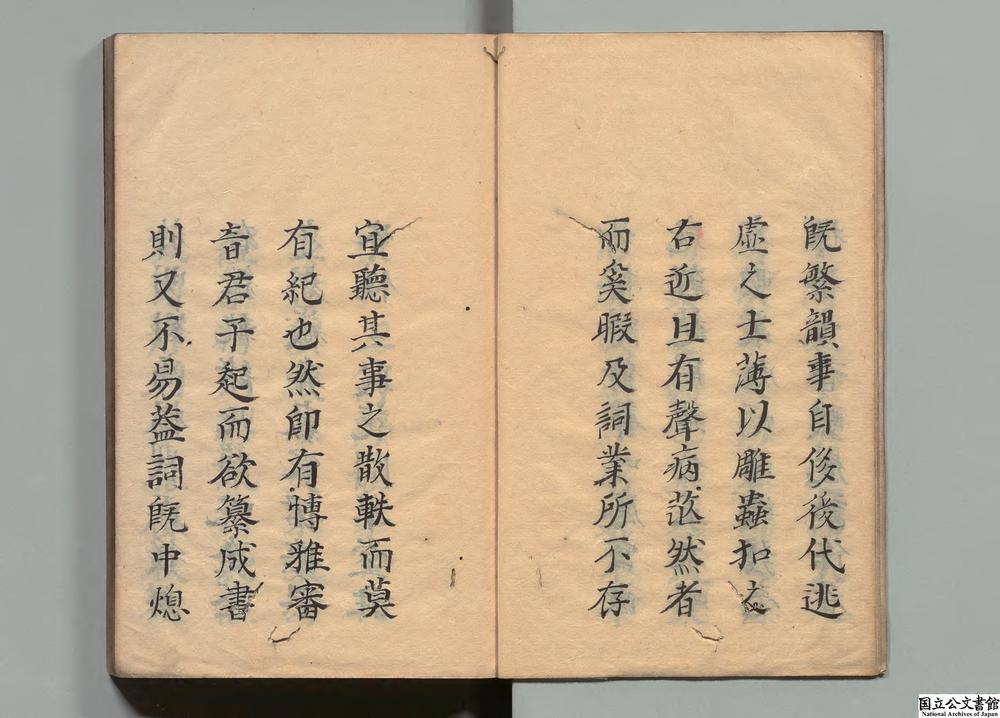 旣繁韻事自侈後代逃
虛之士薄以雕蟲扣之
右近且有聲病茫然者
而奚暇及詞業所不存
宜聽其事之散軼而莫
有紀也然卽有愽雅審
音君子起而欲纂成書
則又不易葢詞旣中熄
国立公文書館
National Archives of Japan